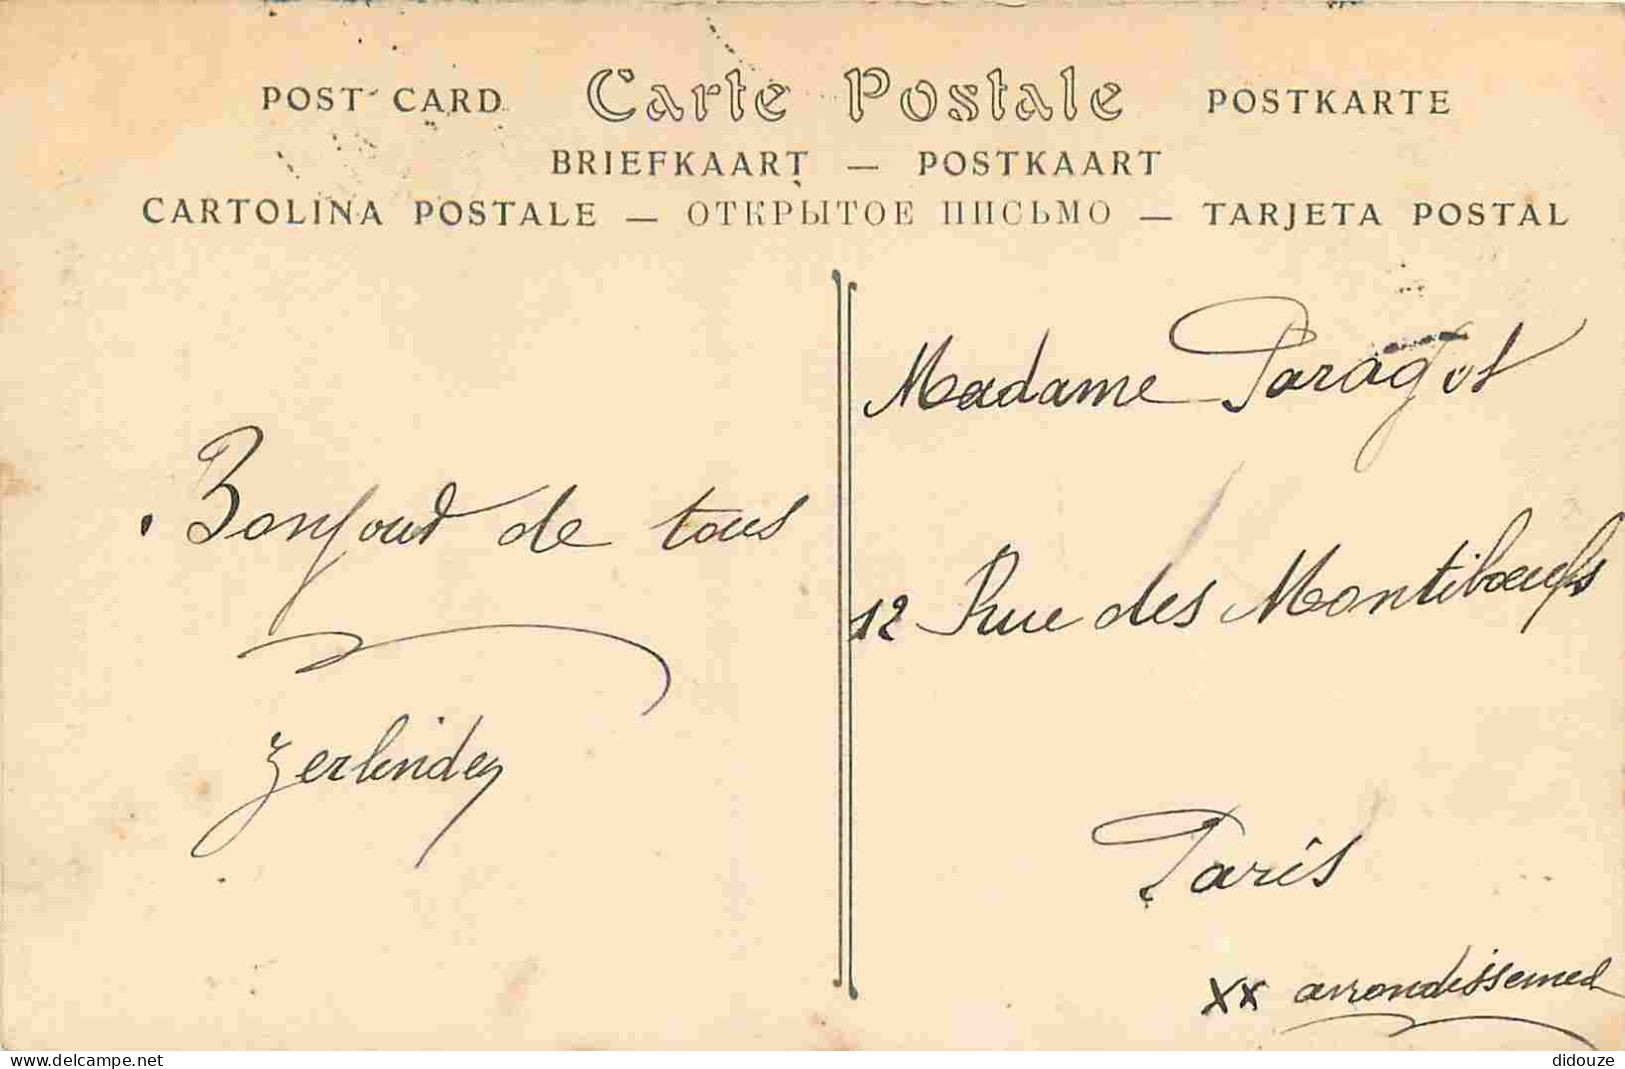 POST CARD Carte Postale POSTKARTE
BRIEFKAART — POSTKAART
CARTOLINA POSTALE — ОТКРЫТОЕ ПИСЬМО — TARJETA POSTAL
Bonjour de tous
Zerlinden
Madame Paragot
12 Rue des Montiboeufs
Paris
XX arrondissement
delcampe.net
didouze